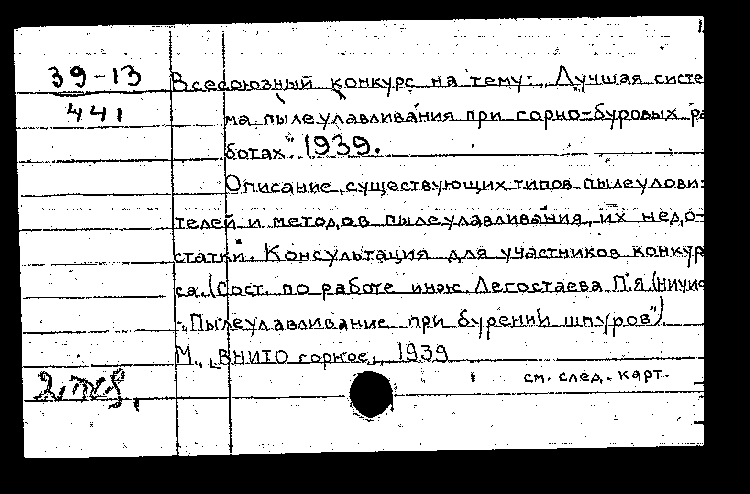 39-13
441
Всесоюзный конкурс на тему: „Лучшая систе
ма пылеулавливания при горно-буровых ра
ботах" 1939.
Описание существующих типов пылеулови-
телей и методов пылеулавливания, их недо-
статки. Консультация для участников конкур
са. (Сост. по работе инж. Легостаева П.Я.
"Пылеулавливание при бурении шпуров").
М., ВНИТО горное, 1939
см. след. карт.